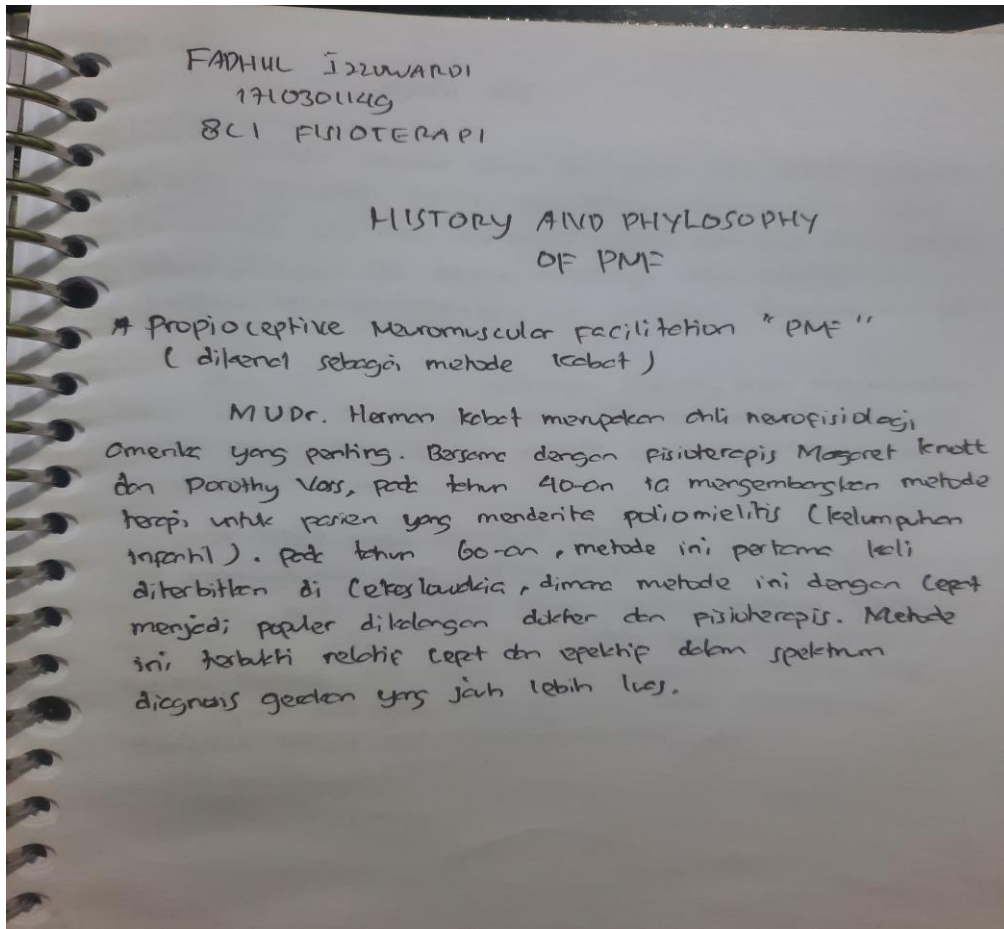 FADHUL IZZUWARDI
1710301149
8C1 FISIOTERAPI
HISTORY AND PHYLOSOPHY
OF PNF
* Propioceptive Neuromuscular Facilitation "PNF"
(dikenal sebagai metode kabat)
MUDr. Herman kabat merupakan ahli neurofisiologi
amerika yang penting. Bersama dengan pisioterapis Magaret knott
dan Dorothy Voss, pada tahun 40-an ia mengembangkan metode
terapi untuk pasien yang menderita poliomielitis (kelumpuhan
infantil). pada tahun 60-an, metode ini pertama kali
diterbitkan di Cekoslowakia, dimana metode ini dengan cepat
menjadi populer dikalangan dokter dan pisioterapis. Metode
ini terbukti relatif cepat dan epektip dalam spektrum
diagnosis gerakan yang jauh lebih luas.